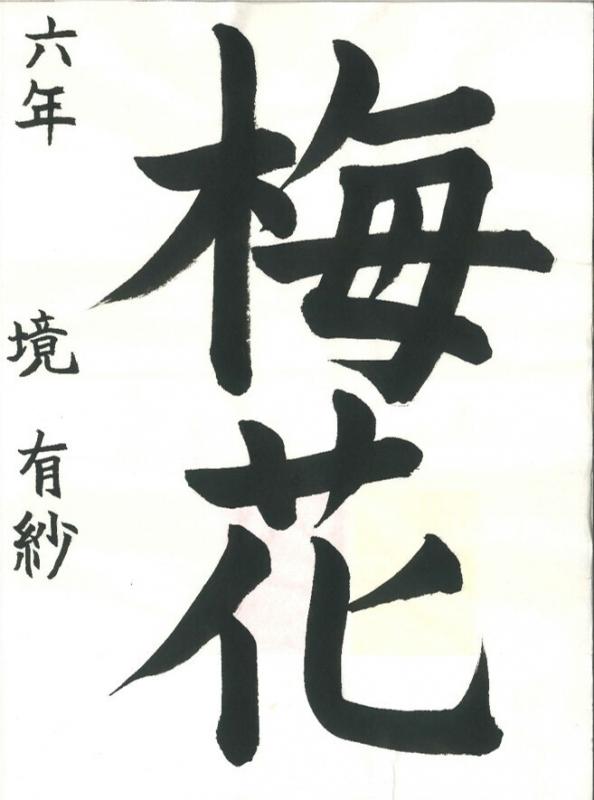 梅花
六年 境 有紗